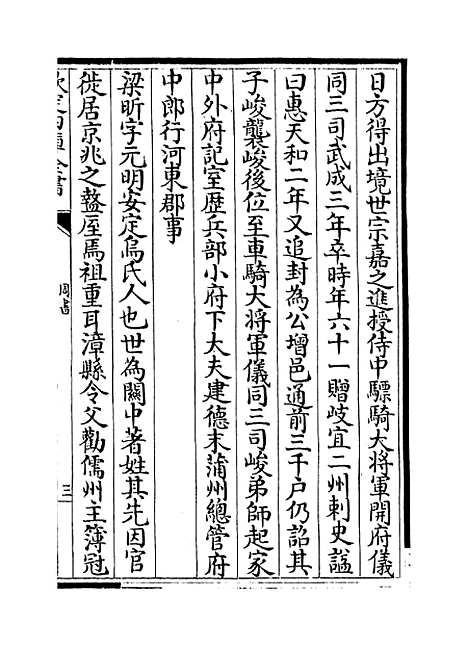 日方得出境世宗嘉之進授侍中驃騎大將軍開府儀
同三司武成三年卒時年六十一贈岐宜二州刺史諡
曰惠天和二年又追封為公增邑通前三千户仍詔其
子峻襲峻後位至車騎大將軍儀同三司峻弟師起家
中外府記室歴兵部小府下大夫建德末蒲州總管府
中郎行河東郡事
梁昕字元明安定烏氏人也世為關中著姓其先因官
徙居京兆之盩厔焉祖重耳漳縣令父勸儒州主簿冠
周書
三